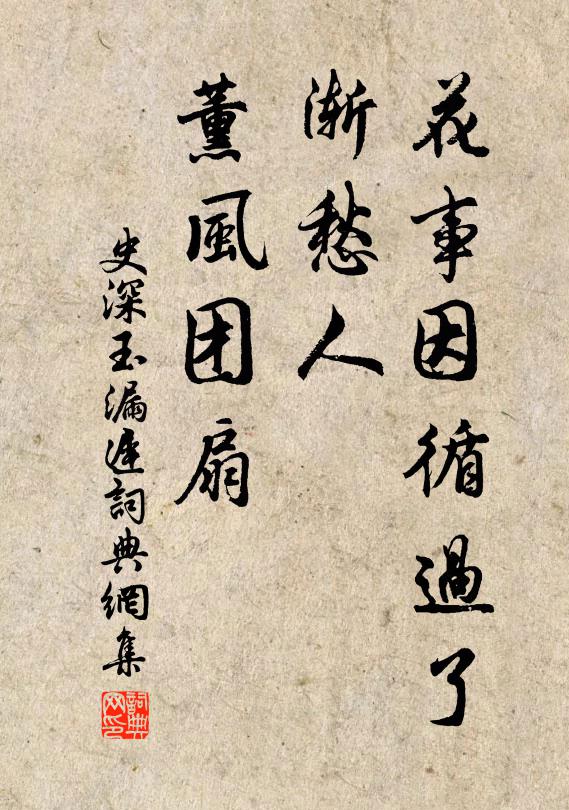 花事因循過了
渐愁人
薰風团扇
史深玉漏遲詞典網集
詞典网印